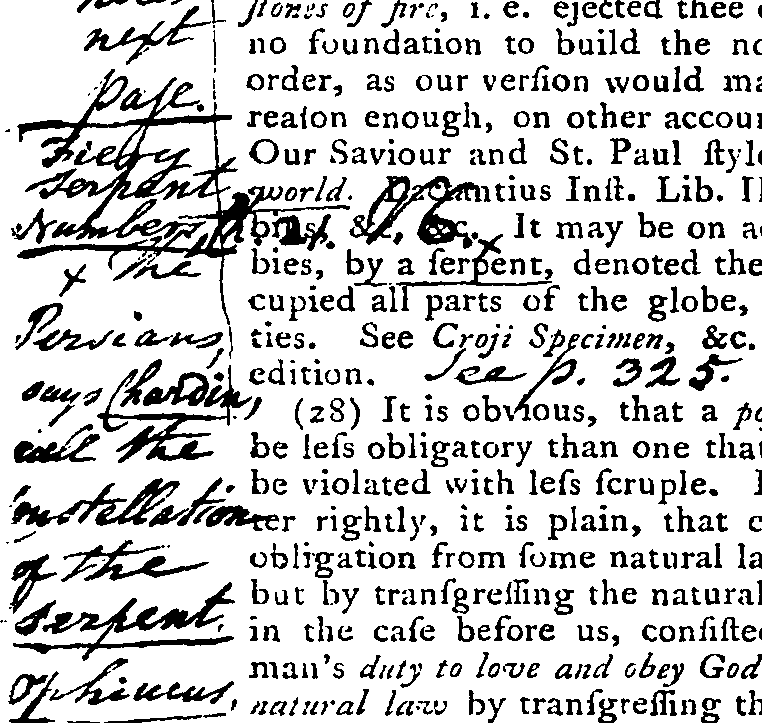 next
page.
Fiery
serpent
Numbers,
x The
Persians,
says Chardin,
call the
constellation
of the
serpent.
Ophineus,
ſtones of fire, i. e. ejected thee
no foundation to build the
order, as our verſion would
reaſon enough, on other
Our Saviour and St. Paul
world. Inſt. Lib.
21. 6. &c. It may be on
bies, by a ſerpent, denoted the
cupied all parts of the globe,
ties. See Croji Specimen, &c.
edition. See p. 325.
(28) It is obvious, that a
be leſs obligatory than one
be violated with leſs ſcruple.
ter rightly, it is plain, that
obligation from ſome natural
but by tranſgreſſing the
in the caſe before us,
man's duty to love and obey God
natural law by tranſgreſſing